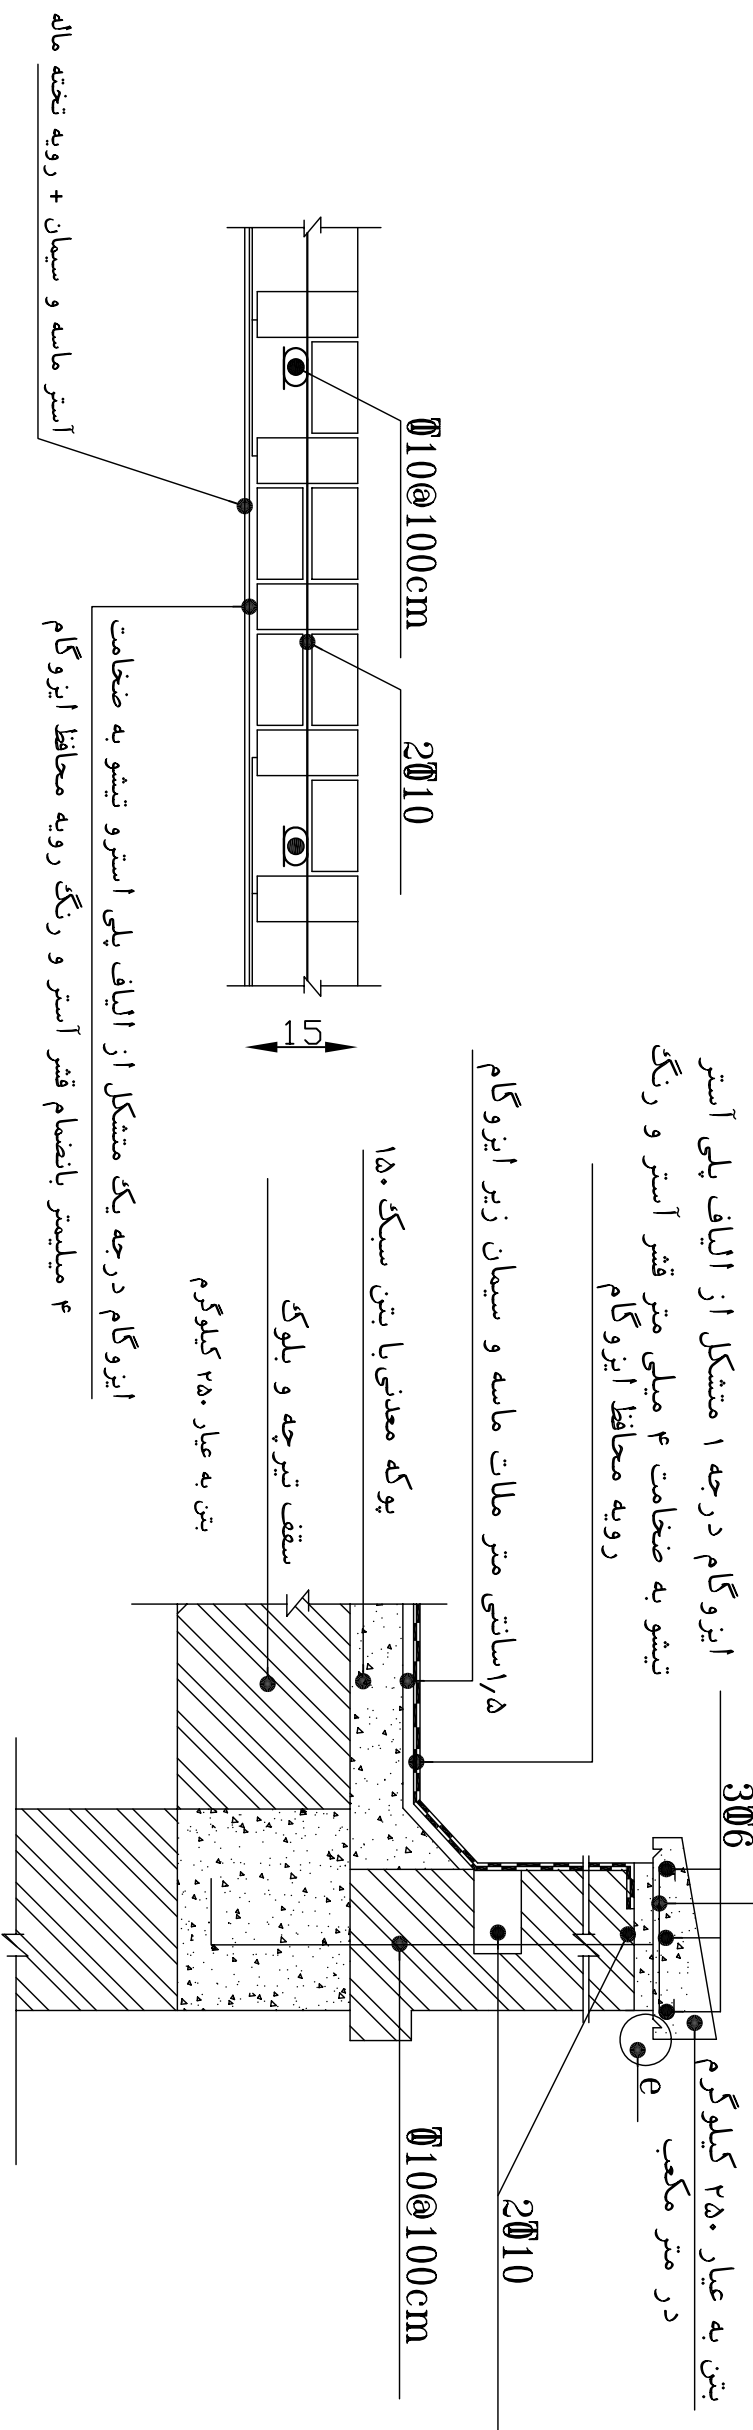 آستر ماسه و سیمان + رویه تخته ماله
Φ10@100cm
2Φ10
ایزوگام درجه یک متشکل از الیاف پلی استرو تیشو به ضخامت
۴ میلیمتر بانضمام قشر آستر و رنگ رویه محافظ ایزوگام
15
ایزوگام درجه ۱ متشکل از الیاف پلی آستر
تیشو به ضخامت ۴ میلی متر قشر آستر و رنگ
رویه محافظ ایزوگام
۱٫۵سانتی متر ملات ماسه و سیمان زیر ایزوگام
پوکه معدنی با بتن سبک ۱۵۰
سقف تیرچه و بلوک
بتن به عیار ۲۵۰ کیلوگرم
3Φ6
e
بتن به عیار ۲۵۰ کیلوگرم
در متر مکعب
2Φ10
Φ10@100cm